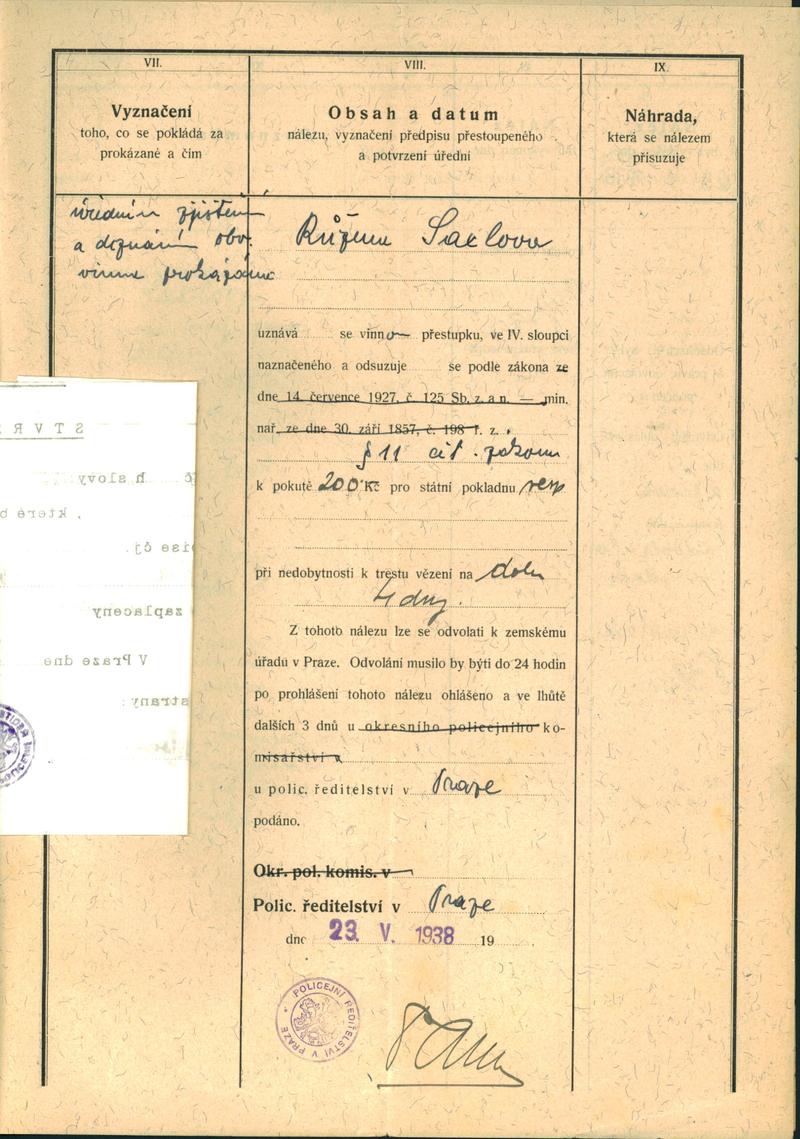 VII.
Vyznačení
toho, co se pokládá za
prokázané a čím
úředním zjištění
a doznáním obv.
vinna prokázáno
VIII.
Obsah a datum
nálezu, vyznačení předpisu přestoupeného
a potvrzení úřední
Růžena
uznává se vinno přestupku, ve IV. sloupci
naznačeného a odsuzuje se podle zákona ze
dne 14. července 1927, č. 125 Sb. z. a n. — min.
nař. ze dne 30. září 1857, č. 198 ř. z.
§ 11 cit. zákona
k pokutě 200 Kč pro státní pokladnu resp
při nedobytnosti k trestu vězení na dobu
4 dny.
Z tohoto nálezu lze se odvolati k zemskému
úřadu v Praze. Odvolání musilo by býti do 24 hodin
po prohlášení tohoto nálezu ohlášeno a ve lhůtě
dalších 3 dnů u okresního policejního ko-
misařství v
u polic. ředitelství v Praze
podáno.
Okr. pol. komis. v
Polic. ředitelství v Praze
dne 23. V. 1938 19
POLICEJNÍ ŘEDITELSTVÍ V PRAZE
IX.
Náhrada,
která se nálezem
přisuzuje
STVR
slovy
, které b
zaplaceny
V Praze dne
strany: